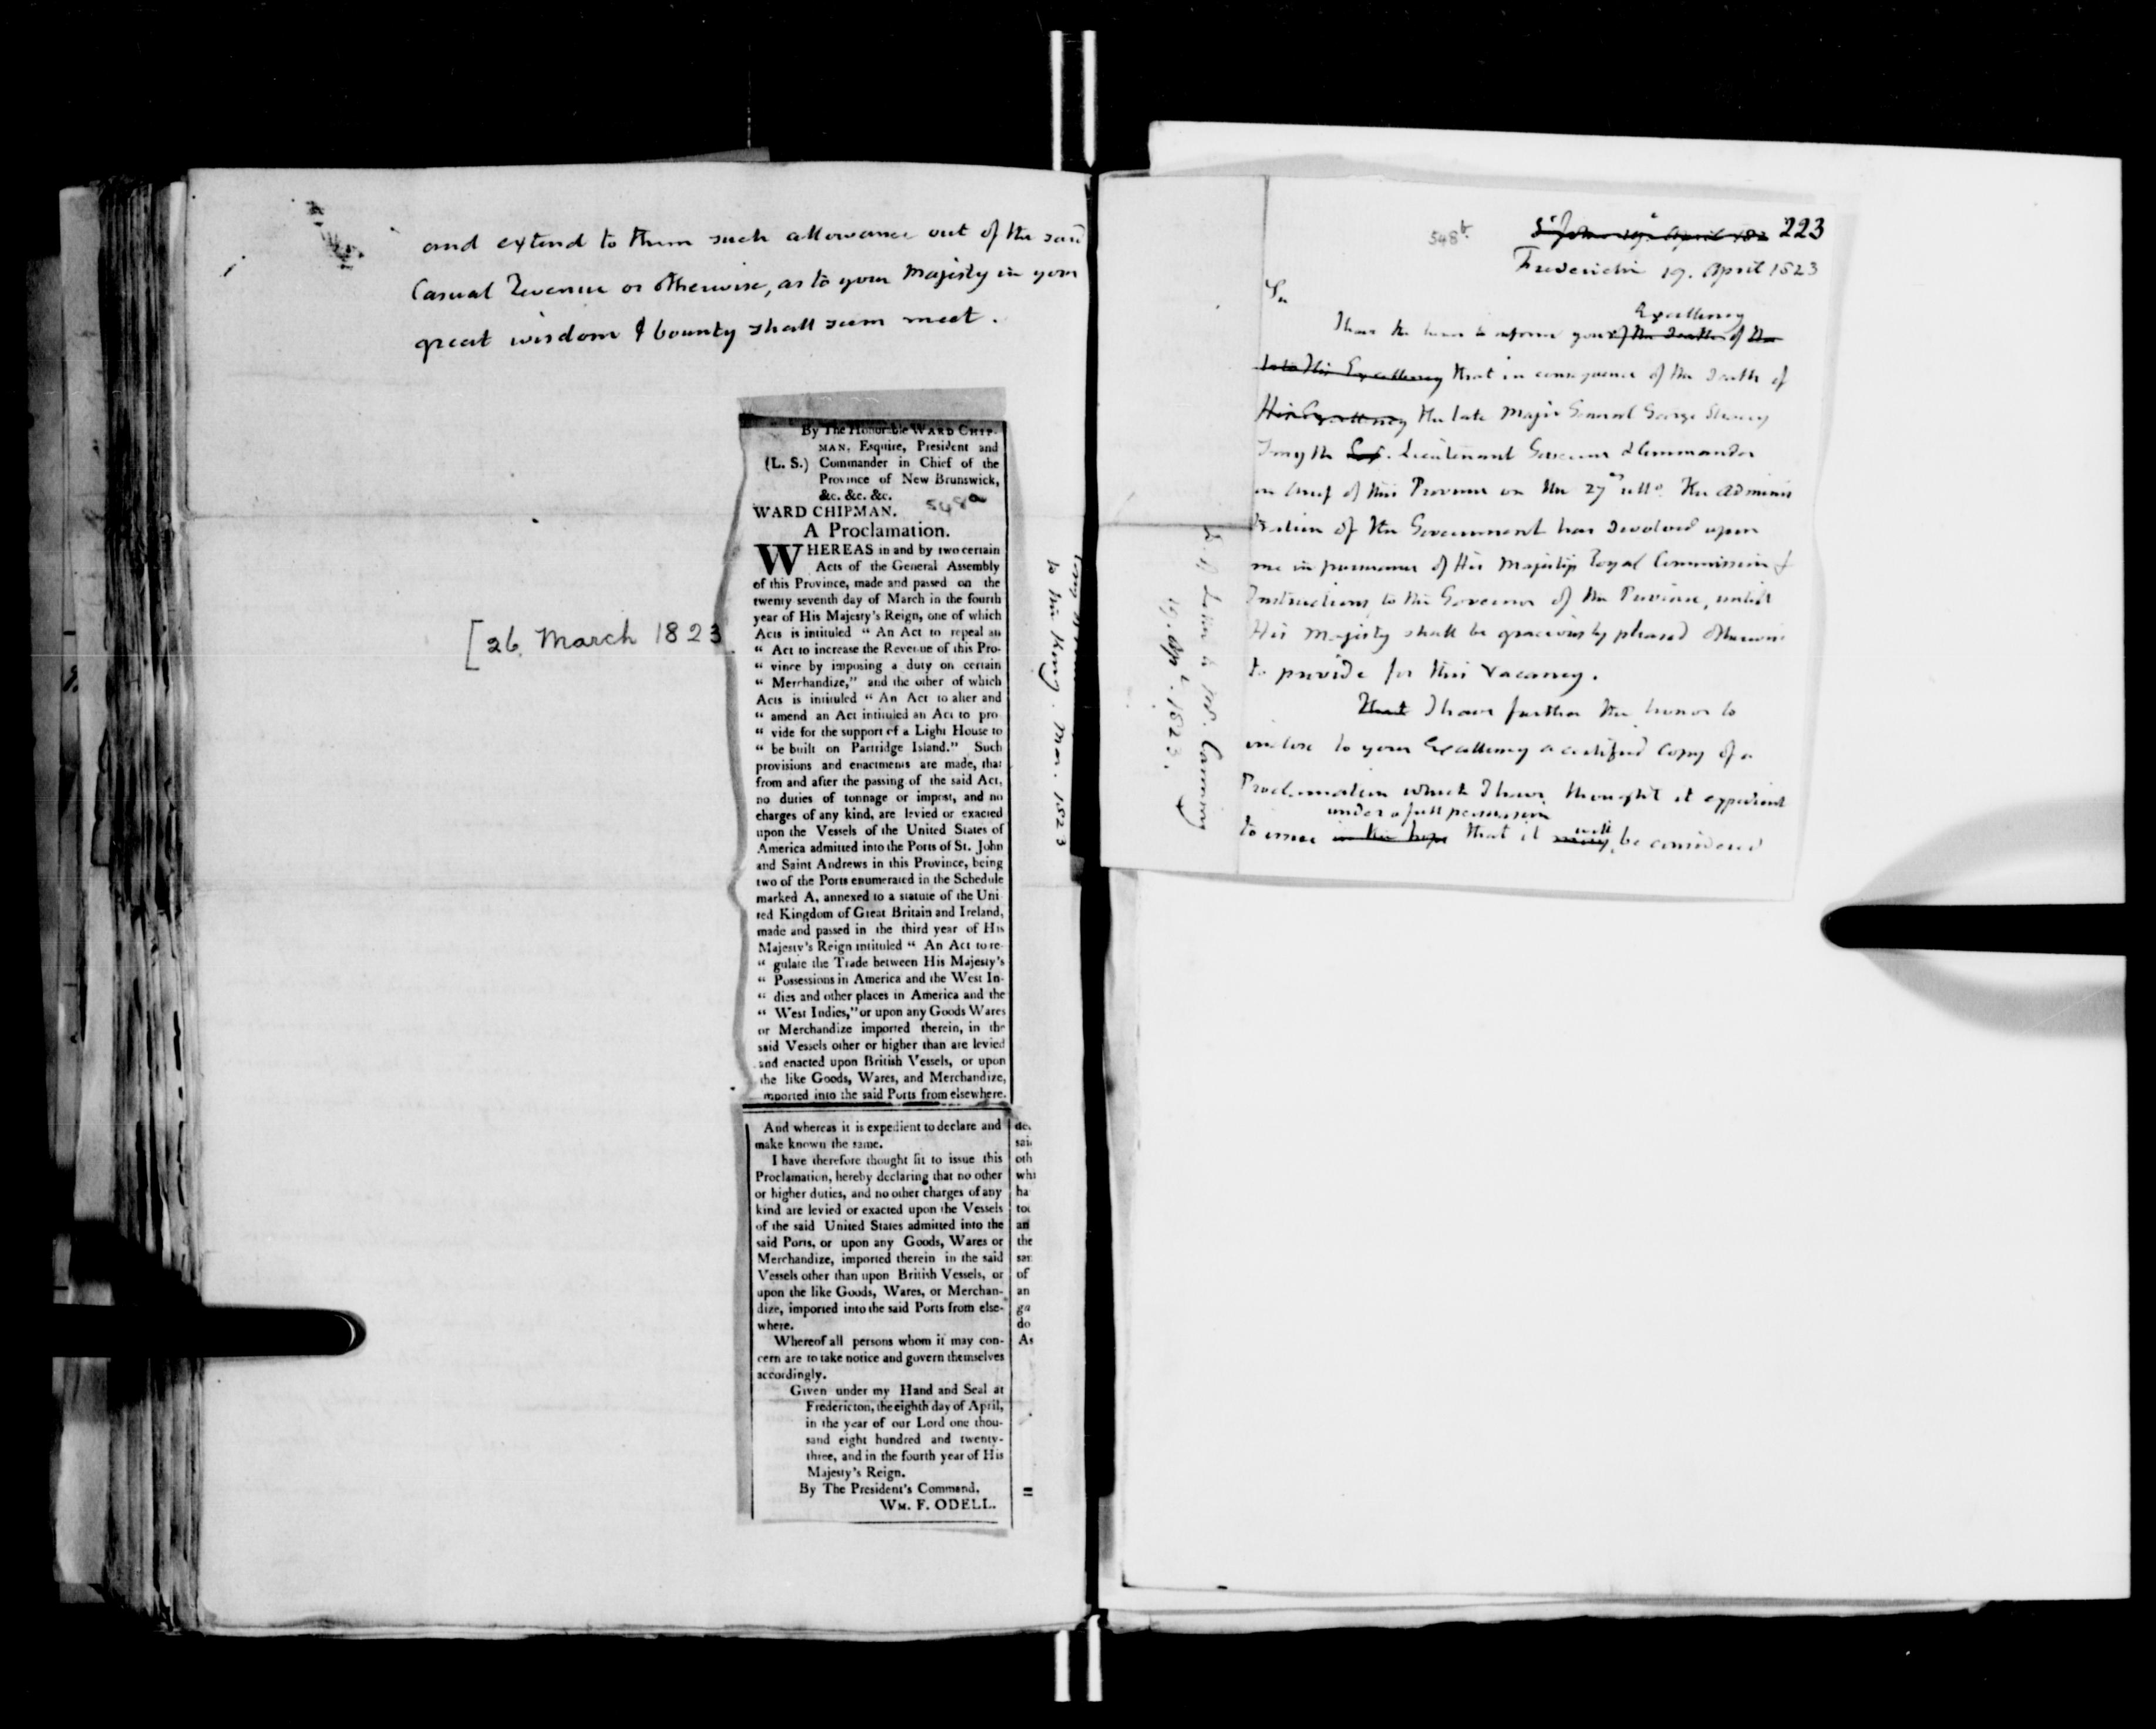 and extend to them such allowance out of the said
Casual Revenue or otherwise, as to your Majesty in your
great wisdom & bounty shall seem meet.
[26 March 1823
By The Honorable WARD CHIP-
MAN, Esquire, President and
(L. S.) Commander in Chief of the
Province of New Brunswick,
&c. &c. &c.
548a
WARD CHIPMAN.
A Proclamation.
WHEREAS in and by two certain
Acts of the General Assembly
of this Province, made and passed on the
twenty seventh day of March in the fourth
year of His Majesty's Reign, one of which
Acts is intituled “ An Act to repeal an
“ Act to increase the Revenue of this Pro-
“ vince by imposing a duty on certain
“ Merchandize,” and the other of which
Acts is intituled “ An Act to alter and
“ amend an Act intituled an Act to pro
“ vide for the support of a Light House to
“ be built on Partridge Island.” Such
provisions and enactments are made, that
from and after the passing of the said Act,
no duties of tonnage or impost, and no
charges of any kind, are levied or exacted
upon the Vessels of the United States of
America admitted into the Ports of St. John
and Saint Andrews in this Province, being
two of the Ports enumerated in the Schedule
marked A, annexed to a statute of the Uni
ted Kingdom of Great Britain and Ireland,
made and passed in the third year of His
Majesty's Reign intituled “ An Act to re-
“ gulate the Trade between His Majesty's
“ Possessions in America and the West In-
“ dies and other places in America and the
“ West Indies,” or upon any Goods Wares
or Merchandize imported therein, in the
said Vessels other or higher than are levied
and enacted upon British Vessels, or upon
the like Goods, Wares, and Merchandize,
mported into the said Ports from elsewhere.
And whereas it is expedient to declare and
make known the same.
I have therefore thought fit to issue this
Proclamation, hereby declaring that no other
or higher duties, and no other charges of any
kind are levied or exacted upon the Vessels
of the said United States admitted into the
said Ports, or upon any Goods, Wares or
Merchandize, imported therein in the said
Vessels other than upon British Vessels, or
upon the like Goods, Wares, or Merchan-
dize, imported into the said Ports from else-
where.
Whereof all persons whom it may con-
cern are to take notice and govern themselves
accordingly.
Given under my Hand and Seal at
Fredericton, the eighth day of April,
in the year of our Lord one thou-
sand eight hundred and twenty-
three, and in the fourth year of His
Majesty's Reign.
By The President's Command.
WM. F. ODELL.
to the King. Mar. 1823
548b
St John 19. April 182 223
Fredericton 19. April 1823
Sir
Excellency
I have the honor to inform your of the Death of the
late His Excellency that in consequence of the Death of
His Excellency the late Major General George Stracey
Smyth Lieutenant Governor & Commander
in Chief of this Province on the 27th ulto. the adminis
tration of the Government has devolved upon
me in pursuance of His Majestys Royal Commission &
Instructions to the Governor of the Province, until
His Majesty shall be graciously pleased otherwise
to provide for this Vacancy.
That I have further the honor to
inclose to your Excellency a certified Copy of a
Proclamation which I have thought it expedient
under a full persuasion
to issue in the hope that it may will be considered
Letter to Mr. Canning
19. Apl. 1823.